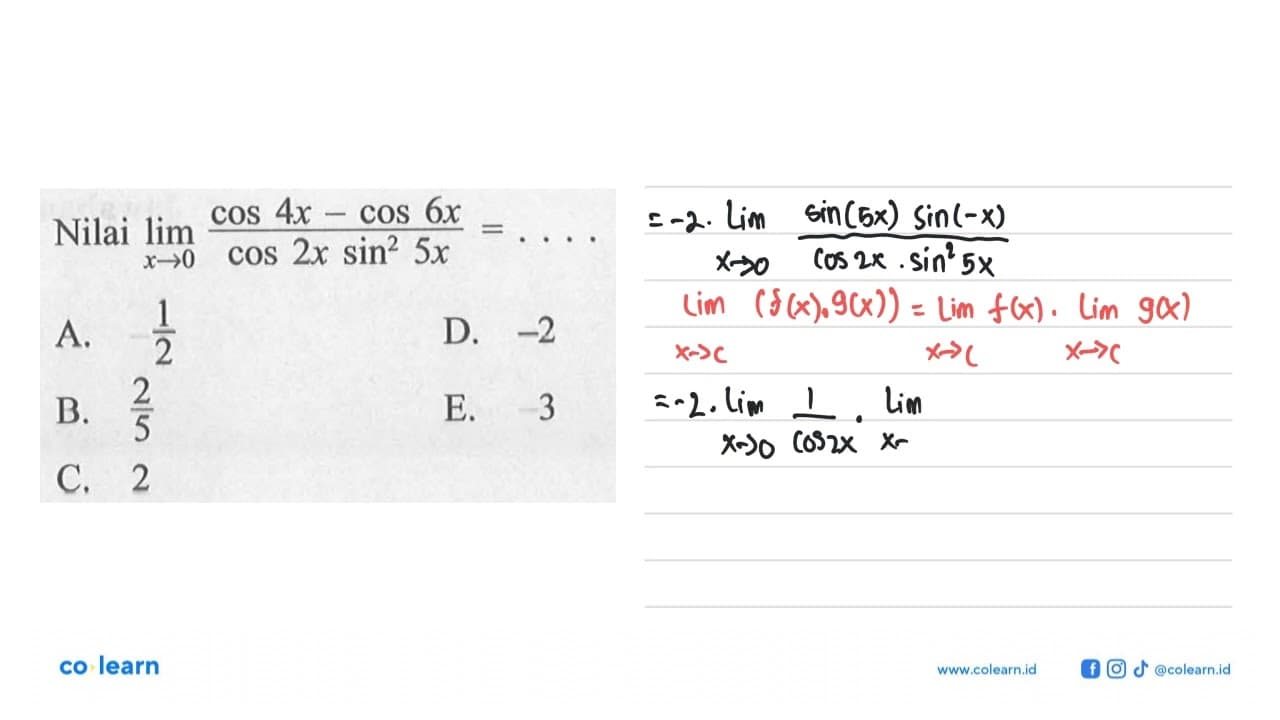 Nilai lim x→0 (cos 4x − cos 6x)/(cos 2x sin² 5x) = . . . .
A. 1/2
B. 2/5
C. 2
D. −2
E. −3
= -2. lim x→0 (sin(5x) sin(-x))/(cos 2x . sin² 5x)
lim x→c (f(x).g(x)) = lim x→c f(x). lim x→c g(x)
= -2. lim x→0 1/cos 2x . lim x-
co learn
www.colearn.id
@colearn.id